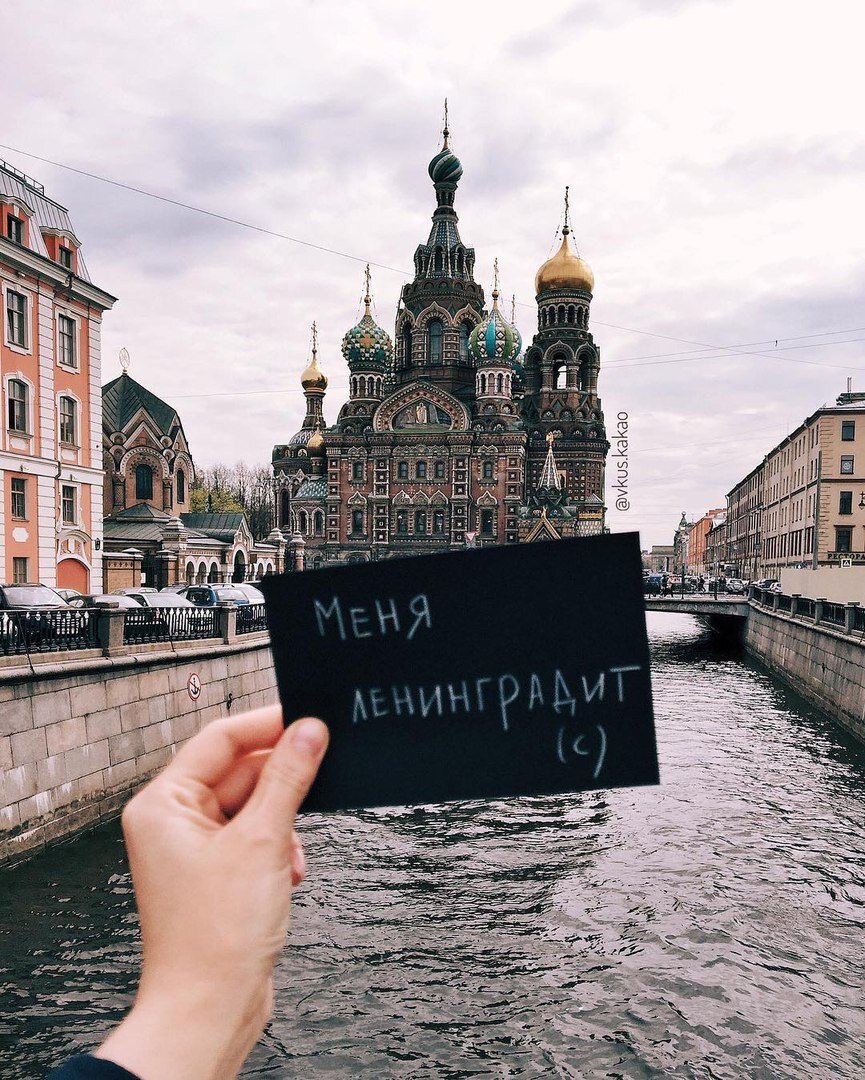 @vkus.kakao
РЕСТОРА
Меня
ленинградит
(с)